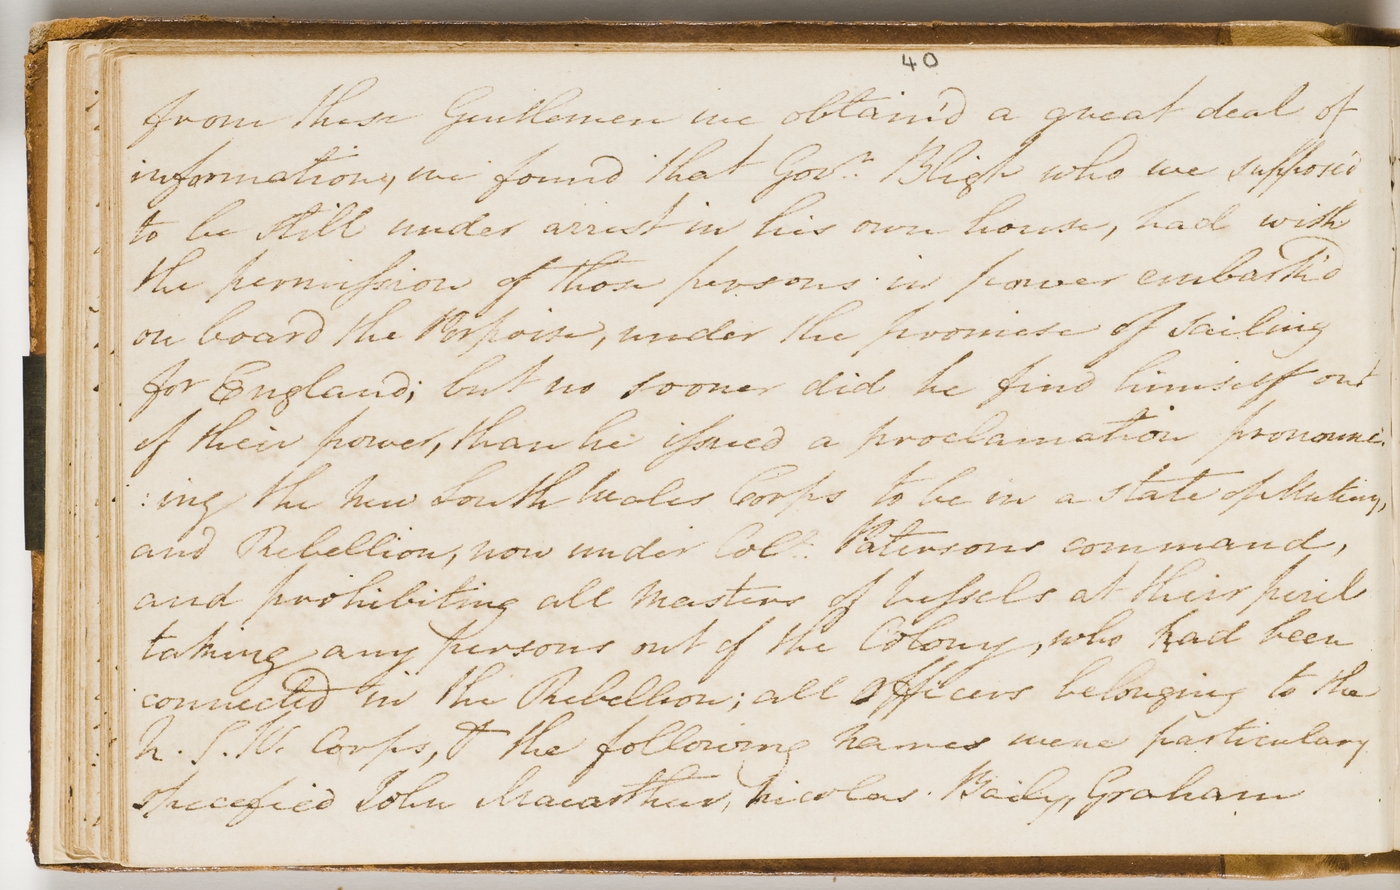 40
from these Gentlemen we obtain'd a great deal of
information, we found that Govr. Bligh who we suppos'd
to be still under arrest in his own house, had with
the permission of those persons in power embark'd
on board the Porpoise, under the promise of sailing
for England; but no sooner did he find himself out
of their power, than he issued a proclamation pronounc:
:ing the New South Wales Corps to be in a state of Mutiny,
and Rebellion, now under Coll. Patersons command,
and prohibiting all Masters of Vessels at their peril
taking any persons out of the Colony, who had been
connected in the Rebellion; all Officers belonging to the
N. S. W. Corps, & the following names were particulary
specefied John Macarthur, Nicolas Baily, Graham